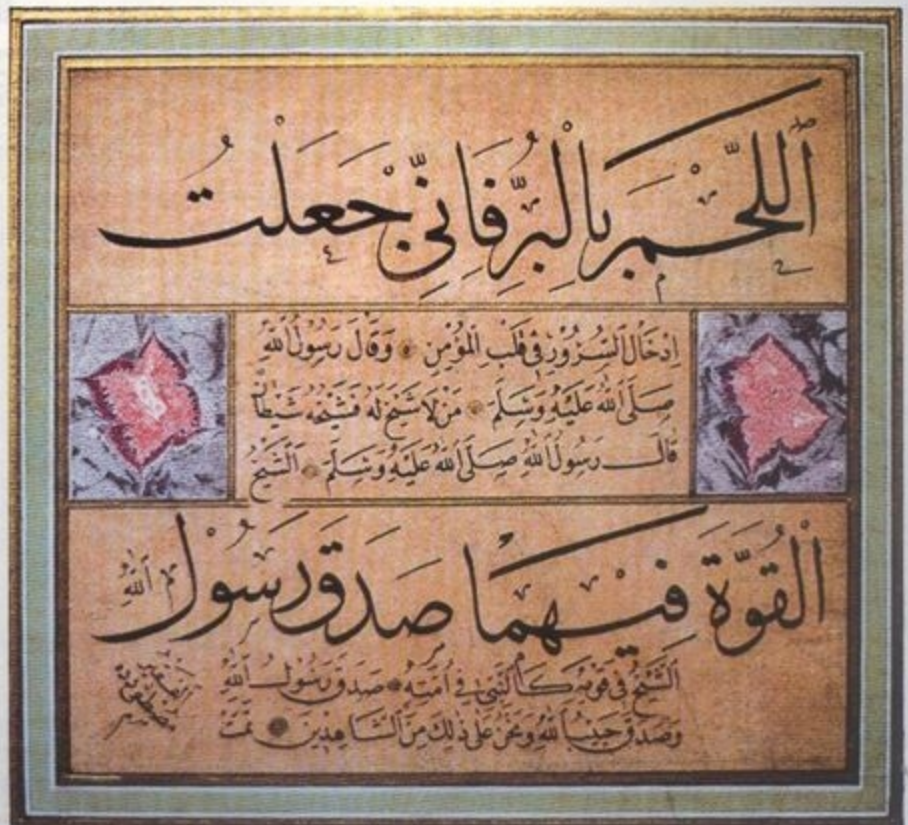 اَللَّحْمَ بِالْبُرِّ فَاِنِّي جَعَلْتُ
اِدْخَالَ السُّرُورِ فِي قَلْبِ الْمُؤْمِنِ وَقَالَ رَسُولُ اللهِ
صَلَّى اللهُ عَلَيْهِ وَسَلَّمَ مَنْ لَا شَيْخَ لَهُ فَشَيْخُهُ شَيْطَانٌ
قَالَ رَسُولُ اللهِ صَلَّى اللهُ عَلَيْهِ وَسَلَّمَ اَلشَّيْخُ
اَلْقُوَّةَ فِيهِمَا صَدَقَ رَسُولُ اللهِ
اَلشَّيْخُ فِي قَوْمِهِ كَالنَّبِيِّ فِي اُمَّتِهِ صَدَقَ رَسُولُ اللهِ
وَصَدَقَ حَبِيبُ اللهِ وَنَحْنُ عَلَى ذٰلِكَ مِنَ الشَّاهِدِينَ تَمَّتْ